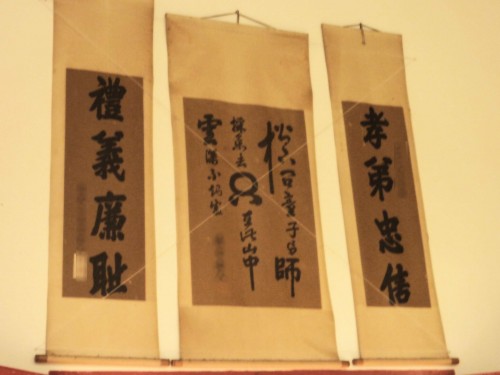 孝弟忠信
松下問童子言師
採藥去
只在此山中
雲深不知處
禮義廉耻